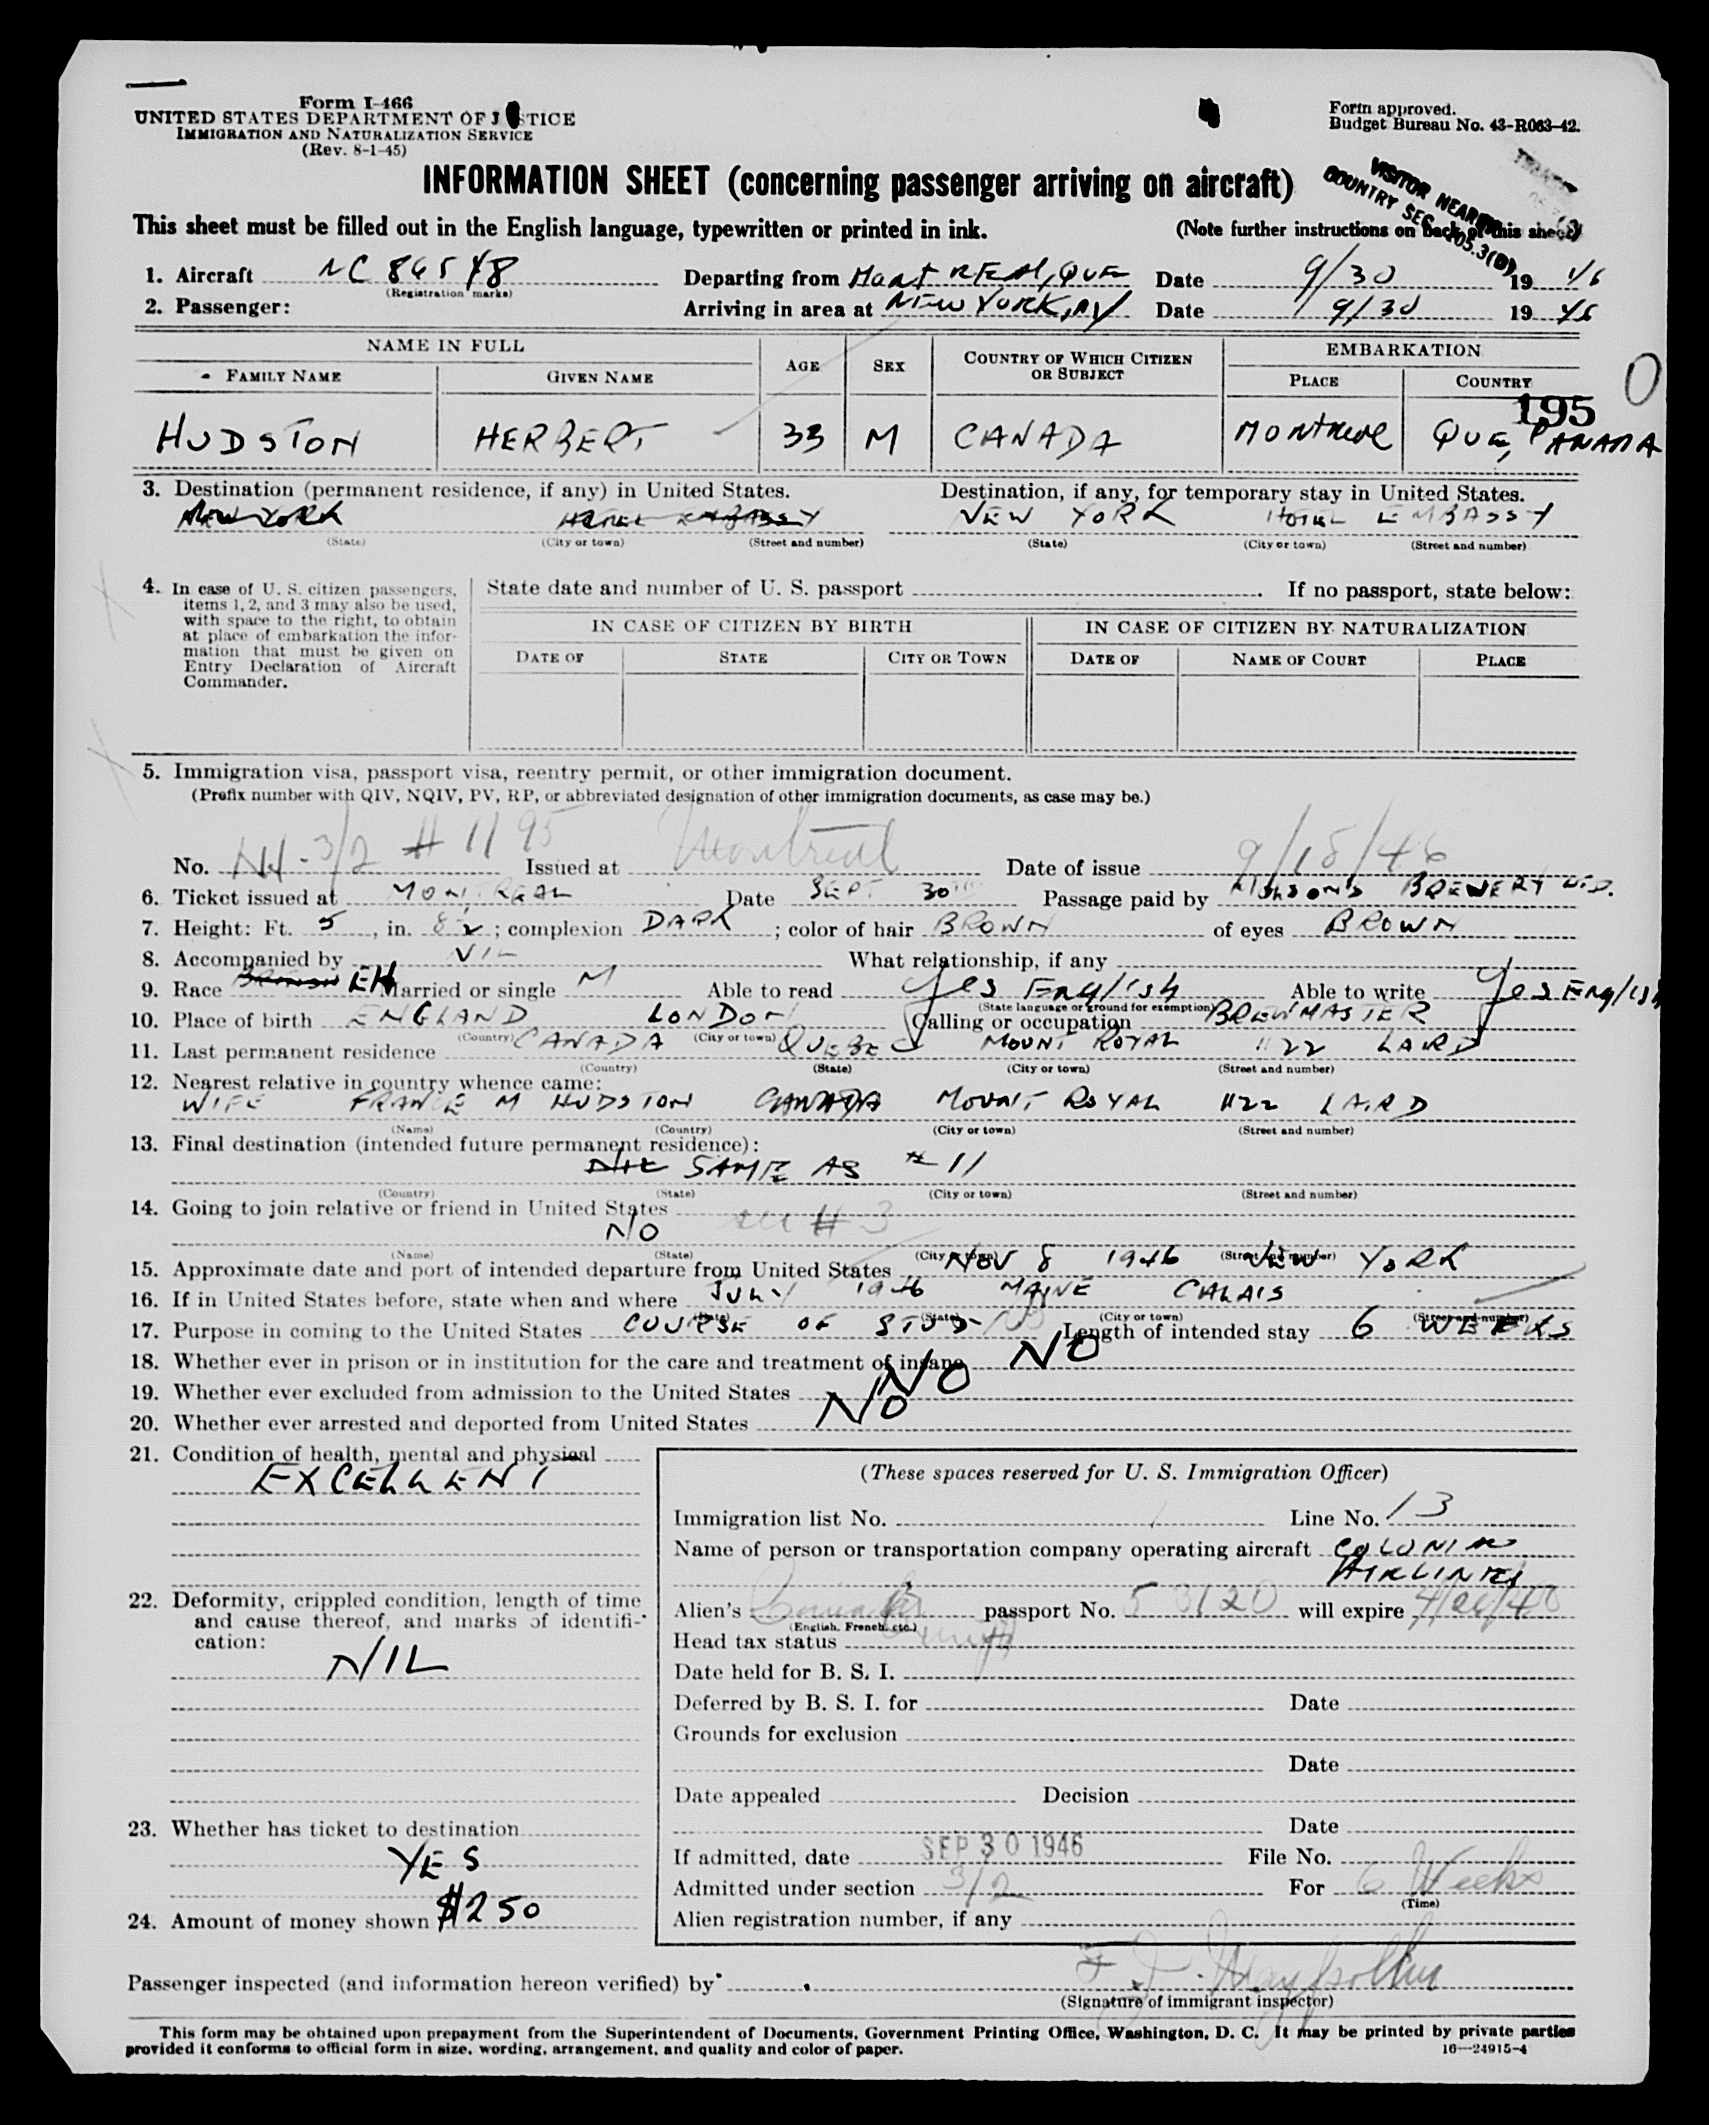 Form I-466
UNITED STATES DEPARTMENT OF J STICE
IMMIGRATION AND NATURALIZATION SERVICE
(Rev. 8-1-45)
Form approved.
Budget Bureau No. 43-R063-42.
INFORMATION SHEET (concerning passenger arriving on aircraft)
VISITOR NEARBY
COUNTRY SEC. 105.3(B)
This sheet must be filled out in the English language, typewritten or printed in ink. (Note further instructions on back of this sheet)
1. Aircraft NC 86548 Departing from MontREAL, QUE Date 9/30 1946
(Registration marks)
2. Passenger: Arriving in area at NEW YORK, NY Date 9/30 1946
NAME IN FULL AGE SEX COUNTRY OF WHICH CITIZEN OR SUBJECT EMBARKATION
FAMILY NAME GIVEN NAME PLACE COUNTRY
0
195
HUDSTON HERBERT 33 M CANADA MONTREAL QUE, CANADA
3. Destination (permanent residence, if any) in United States. Destination, if any, for temporary stay in United States.
NEW YORK HOTEL EMBASSY NEW YORK HOTEL EMBASSY
(State) (City or town) (Street and number) (State) (City or town) (Street and number)
4. In case of U. S. citizen passengers, items 1, 2, and 3 may also be used, with space to the right, to obtain at place of embarkation the information that must be given on Entry Declaration of Aircraft Commander.
State date and number of U. S. passport . If no passport, state below:
IN CASE OF CITIZEN BY BIRTH IN CASE OF CITIZEN BY NATURALIZATION
DATE OF STATE CITY OR TOWN DATE OF NAME OF COURT PLACE
5. Immigration visa, passport visa, reentry permit, or other immigration document.
(Prefix number with QIV, NQIV, PV, RP, or abbreviated designation of other immigration documents, as case may be.)
No. 3/2 # 1195 Issued at Montreal Date of issue 9/18/46
6. Ticket issued at MONTREAL Date SEPT 30 Passage paid by MOLSON'S BREWERY LTD.
7. Height: Ft. 5, in. 8½; complexion DARK; color of hair BROWN of eyes BROWN
8. Accompanied by NIL What relationship, if any
9. Race EH Married or single M Able to read Yes English Able to write Yes English
(State language or ground for exemption)
10. Place of birth ENGLAND LONDON Calling or occupation BREWMASTER
(Country) (City or town)
11. Last permanent residence CANADA QUEBEC MOUNT ROYAL 1122 LAIRD
(Country) (State) (City or town) (Street and number)
12. Nearest relative in country whence came:
WIFE M HUDSTON CANADA MOUNT ROYAL 1122 LAIRD
(Name) (Country) (City or town) (Street and number)
13. Final destination (intended future permanent residence):
NIL SAME AS # 11
(Country) (State) (City or town) (Street and number)
14. Going to join relative or friend in United States
NO see # 3
(Name) (State) (City or town) (Street and number)
15. Approximate date and port of intended departure from United States NOV 8 1946 NEW YORK
16. If in United States before, state when and where JULY 1946 MAINE CALAIS
(Date) (State) (City or town) (Street and number)
17. Purpose in coming to the United States COURSE OF STUDY Length of intended stay 6 WEEKS
18. Whether ever in prison or in institution for the care and treatment of insane NO
19. Whether ever excluded from admission to the United States NO
20. Whether ever arrested and deported from United States NO
21. Condition of health, mental and physical
EXCELLENT
22. Deformity, crippled condition, length of time and cause thereof, and marks of identification:
NIL
23. Whether has ticket to destination
YES
24. Amount of money shown $250
(These spaces reserved for U. S. Immigration Officer)
Immigration list No. Line No. 13
Name of person or transportation company operating aircraft COLONIAL
AIRLINES
Alien's passport No. will expire
(English, French, etc.)
Head tax status
Date held for B. S. I.
Deferred by B. S. I. for Date
Grounds for exclusion
Date
Date appealed Decision
Date
If admitted, date SEP 30 1946 File No.
Admitted under section 3/2 For 6 Weeks
(Time)
Alien registration number, if any
Passenger inspected (and information hereon verified) by
(Signature of immigrant inspector)
This form may be obtained upon prepayment from the Superintendent of Documents, Government Printing Office, Washington, D. C. It may be printed by private parties
provided it conforms to official form in size, wording, arrangement, and quality and color of paper.
16—24915-4